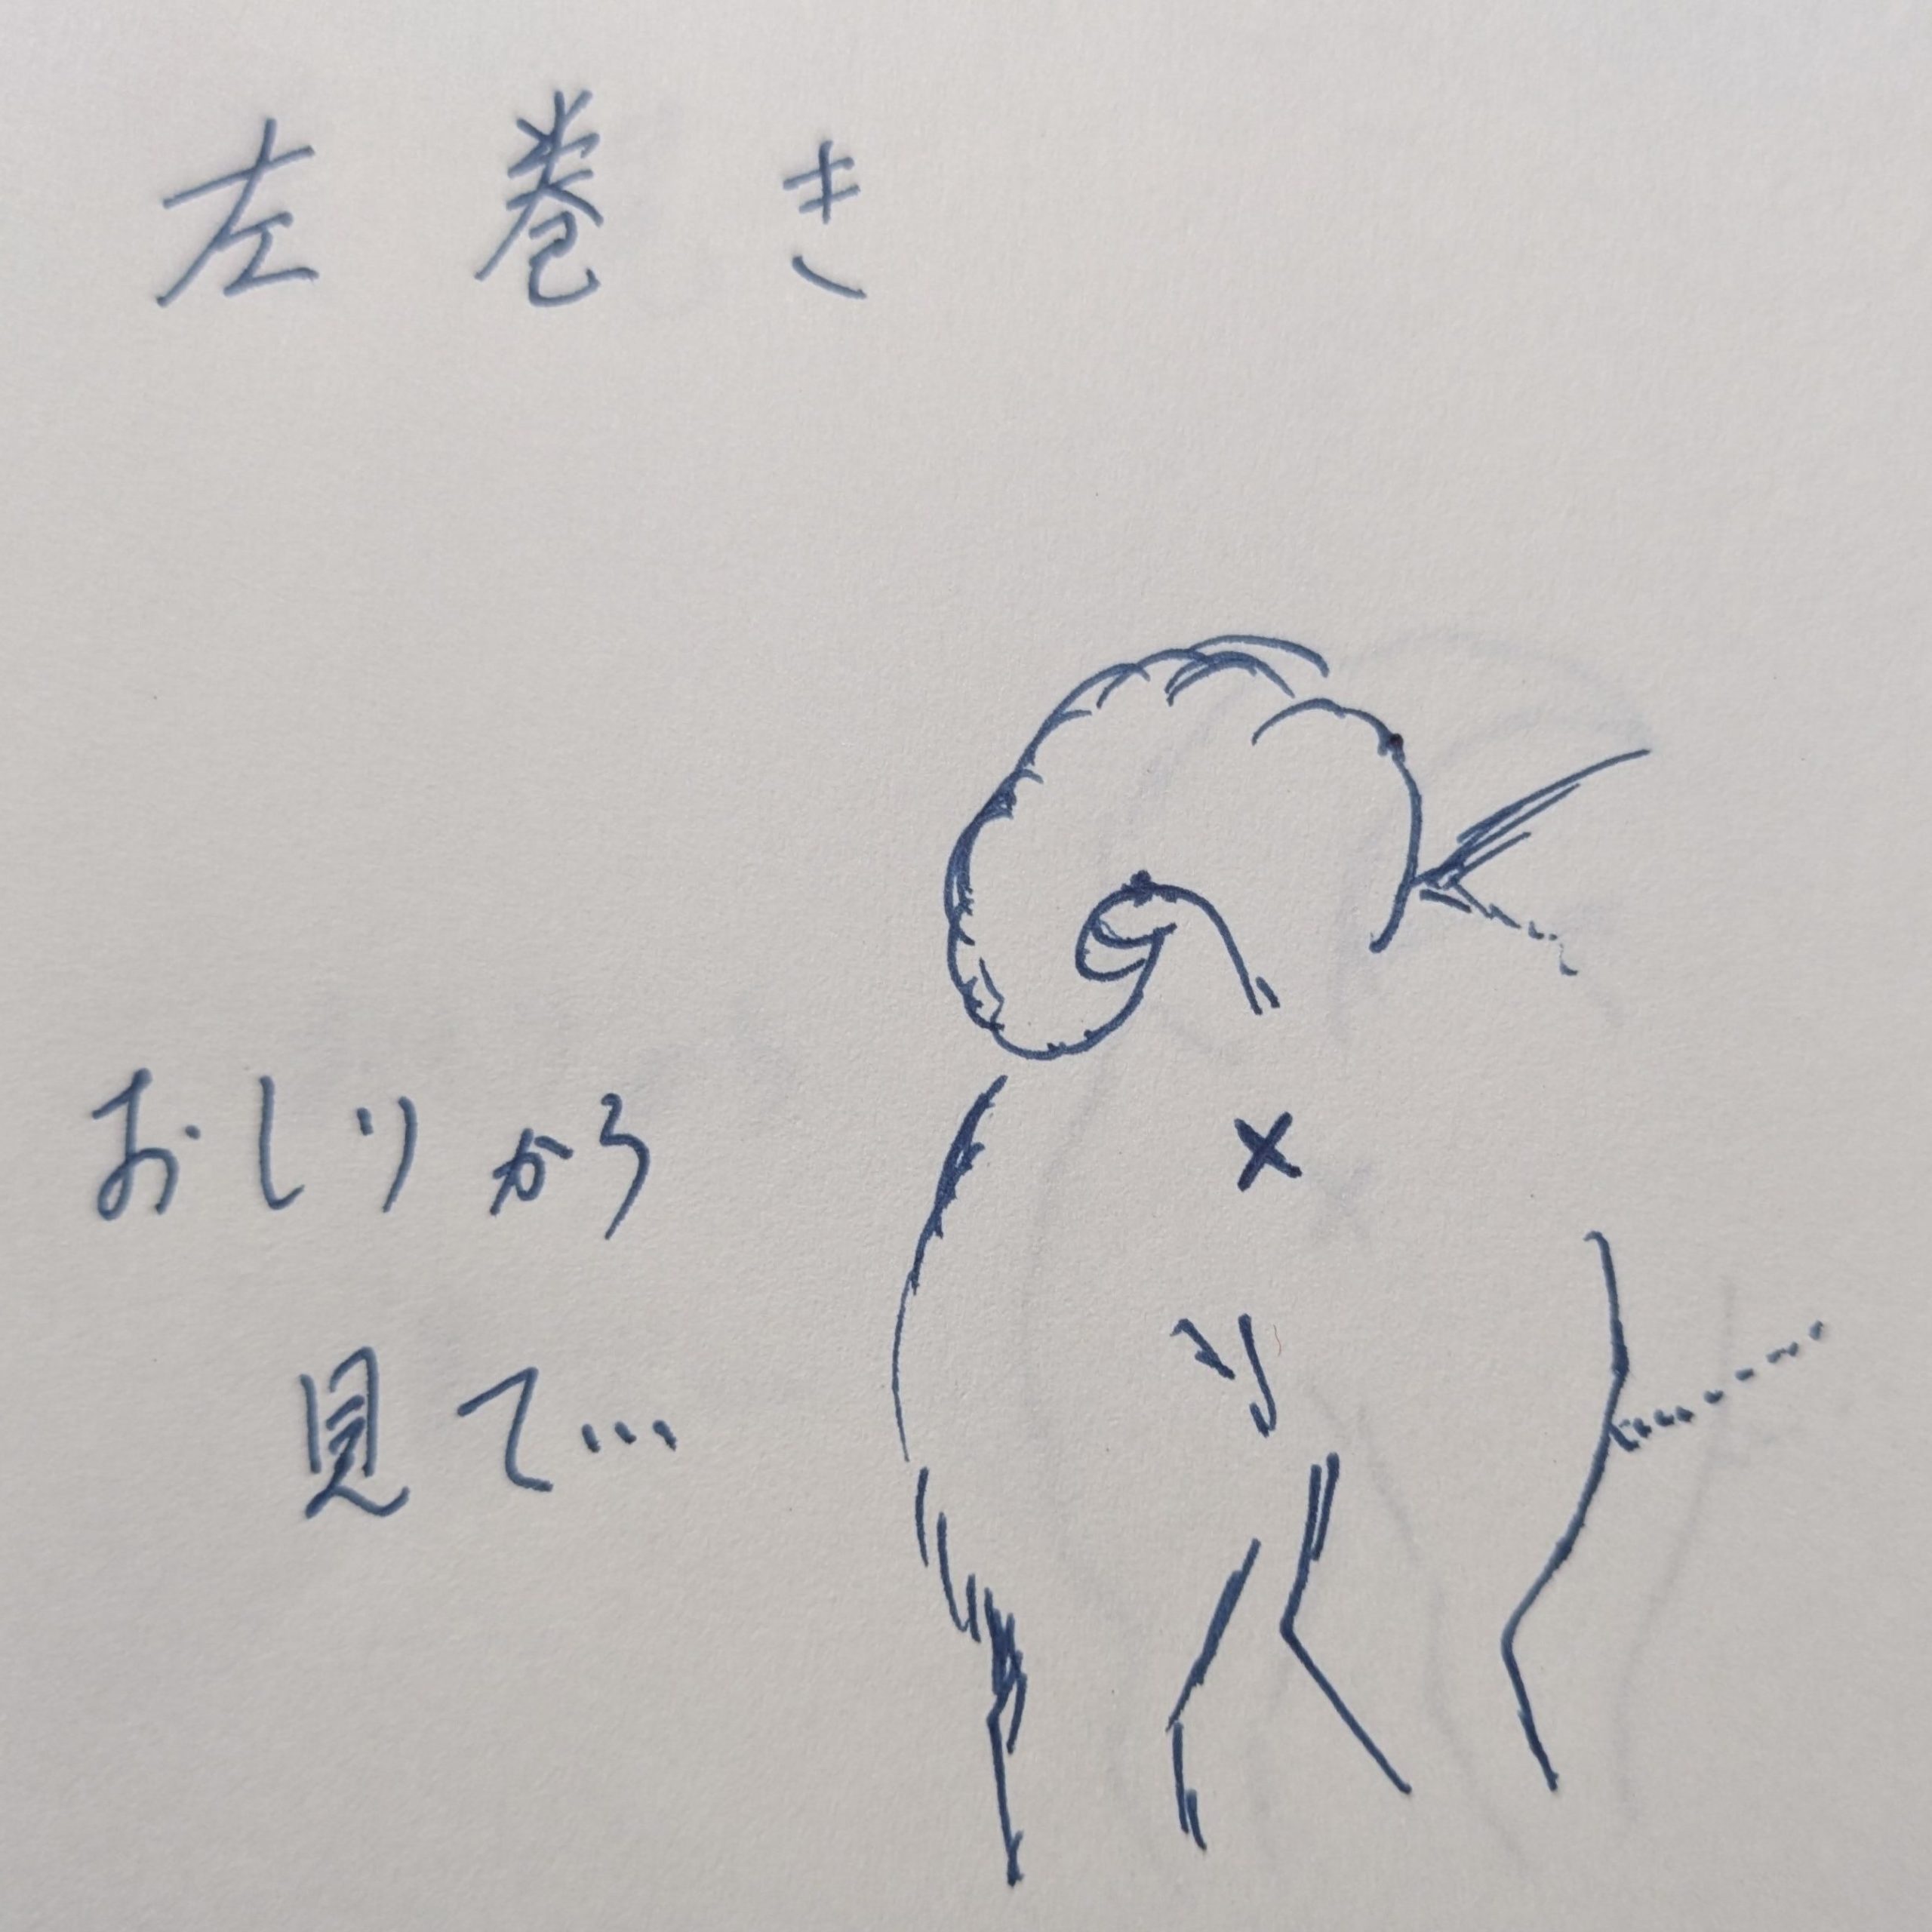 左巻き
おしりから
見て…